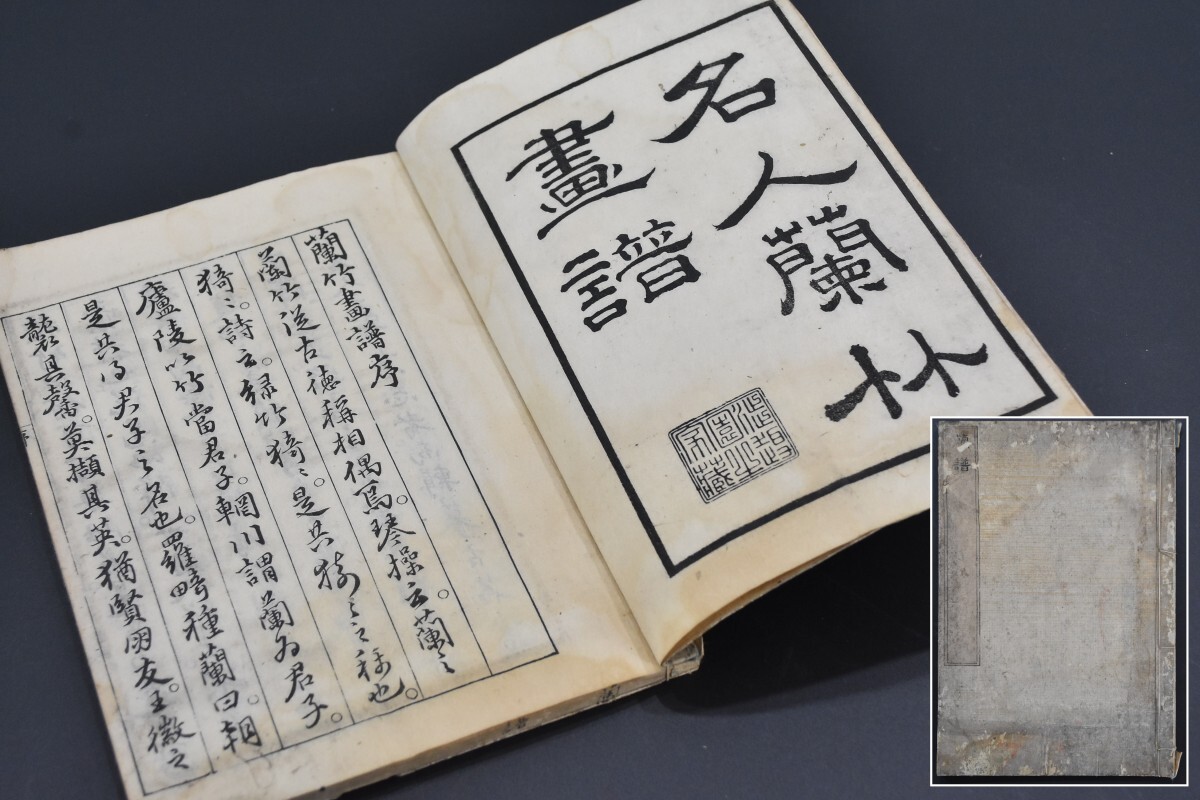 名人蘭竹
畫譜
蘭竹畫譜序
蘭竹從古德稱相偶焉。琴操云。蘭之
猗〻。詩云。緑竹猗〻。是共猗〻之称也。
廬陵以竹當君子。輞川謂蘭為君子。
是共得君子之名也。羅畸種蘭曰。朝
襲其馨。莫擷其英。猶賢朋友。王徽之
譜